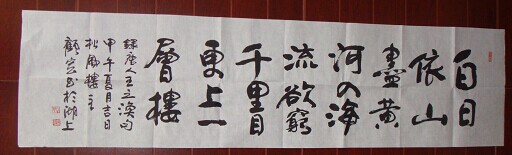 白日
依山
盡黄
河入海
流欲窮
千里目
更上一
層樓
錄唐人王之渙句
甲午夏月吉日
松風樓主
顧書於湖上